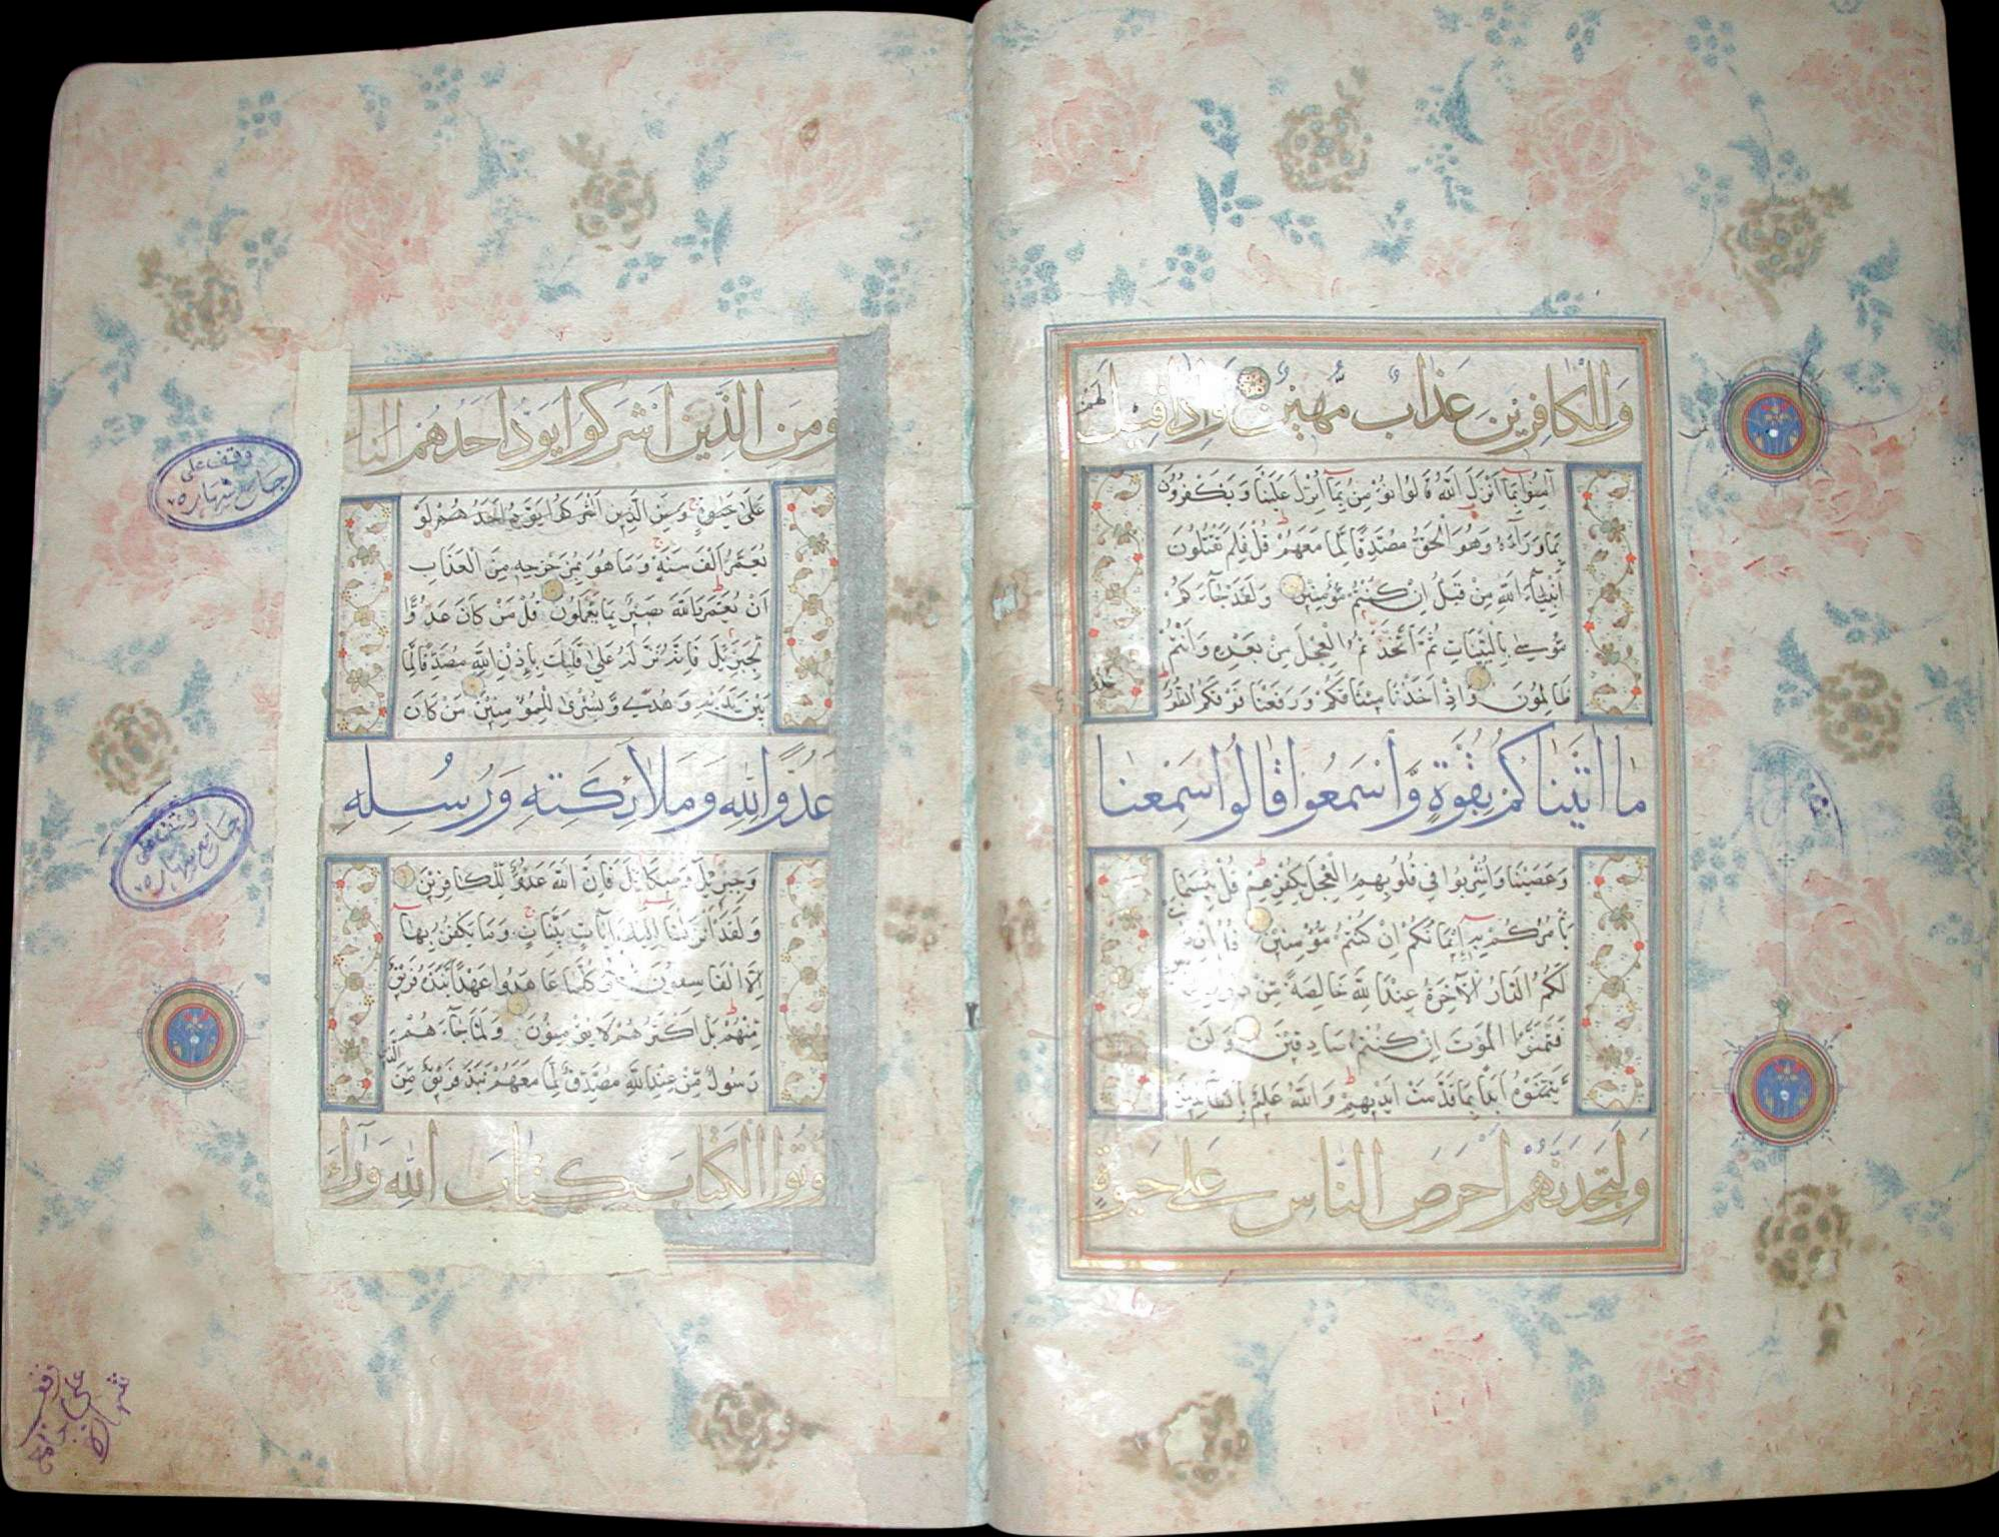 وَلِلْكَافِرِينَ عَذَابٌ مُّهِينٌ وَإِذَا قِيلَ لَهُمْ
آمِنُوا بِمَا أَنْزَلَ اللَّهُ قَالُوا نُؤْمِنُ بِمَا أُنْزِلَ عَلَيْنَا وَيَكْفُرُونَ
بِمَا وَرَآءَهُ وَهُوَ الْحَقُّ مُصَدِّقًا لِّمَا مَعَهُمْ قُلْ فَلِمَ تَقْتُلُونَ
أَنْبِيَآءَ اللَّهِ مِنْ قَبْلُ إِنْ كُنْتُمْ مُّؤْمِنِينَ وَلَقَدْ جَآءَكُمْ
مُّوسَىٰ بِالْبَيِّنَاتِ ثُمَّ اتَّخَذْتُمُ الْعِجْلَ مِنْ بَعْدِهِ وَأَنْتُمْ
ظَالِمُونَ وَإِذْ أَخَذْنَا مِيثَاقَكُمْ وَرَفَعْنَا فَوْقَكُمُ الطُّورَ
مَا اتَيْنَاكُمْ بِقُوَّةٍ وَّاسْمَعُوا قَالُوا سَمِعْنَا
وَعَصَيْنَا وَأُشْرِبُوا فِي قُلُوبِهِمُ الْعِجْلَ بِكُفْرِهِمْ قُلْ بِئْسَمَا
يَأْمُرُكُمْ بِهِ إِيمَانُكُمْ إِنْ كُنْتُمْ مُّؤْمِنِينَ قُلْ إِنْ كَانَتْ
لَكُمُ الدَّارُ الْآخِرَةُ عِنْدَ اللَّهِ خَالِصَةً مِّنْ دُونِ
فَتَمَنَّوُا الْمَوْتَ إِنْ كُنْتُمْ صَادِقِينَ وَلَنْ
يَتَمَنَّوْهُ أَبَدًا بِمَا قَدَّمَتْ أَيْدِيهِمْ وَاللَّهُ عَلِيمٌ بِالظَّالِمِينَ
وَلَتَجِدَنَّهُمْ أَحْرَصَ النَّاسِ عَلَىٰ حَيٰوةٍ
وَمِنَ الَّذِينَ أَشْرَكُوا يَوَدُّ أَحَدُهُمْ
عَلَىٰ حَيٰوةٍ وَمِنَ الَّذِينَ أَشْرَكُوا يَوَدُّ أَحَدُهُمْ لَوْ
يُعَمَّرُ أَلْفَ سَنَةٍ وَمَا هُوَ بِمُزَحْزِحِهِ مِنَ الْعَذَابِ
أَنْ يُعَمَّرَ وَاللَّهُ بَصِيرٌ بِمَا يَعْمَلُونَ قُلْ مَنْ كَانَ عَدُوًّا
لِّجِبْرِيلَ فَإِنَّهُ نَزَّلَهُ عَلَىٰ قَلْبِكَ بِإِذْنِ اللَّهِ مُصَدِّقًا لِّمَا
بَيْنَ يَدَيْهِ وَهُدًى وَّبُشْرَىٰ لِلْمُؤْمِنِينَ مَنْ كَانَ
عَدُوًّا لِلَّهِ وَمَلَائِكَتِهِ وَرُسُلِهِ
وَجِبْرِيلَ وَمِيكَائِيلَ فَإِنَّ اللَّهَ عَدُوٌّ لِّلْكَافِرِينَ
وَلَقَدْ أَنْزَلْنَا إِلَيْكَ آيَاتٍ بَيِّنَاتٍ وَمَا يَكْفُرُ بِهَا
إِلَّا الْفَاسِقُونَ أَوَكُلَّمَا عَاهَدُوا عَهْدًا نَّبَذَهُ فَرِيقٌ
مِّنْهُمْ بَلْ أَكْثَرُهُمْ لَا يُؤْمِنُونَ وَلَمَّا جَآءَهُمْ
رَسُولٌ مِّنْ عِنْدِ اللَّهِ مُصَدِّقٌ لِّمَا مَعَهُمْ نَبَذَ فَرِيقٌ مِّنَ الَّذِينَ
أُوتُوا الْكِتَابَ كِتَابَ اللَّهِ وَرَآءَ
وقف على
جامع شهاره
وقف على
جامع شهاره